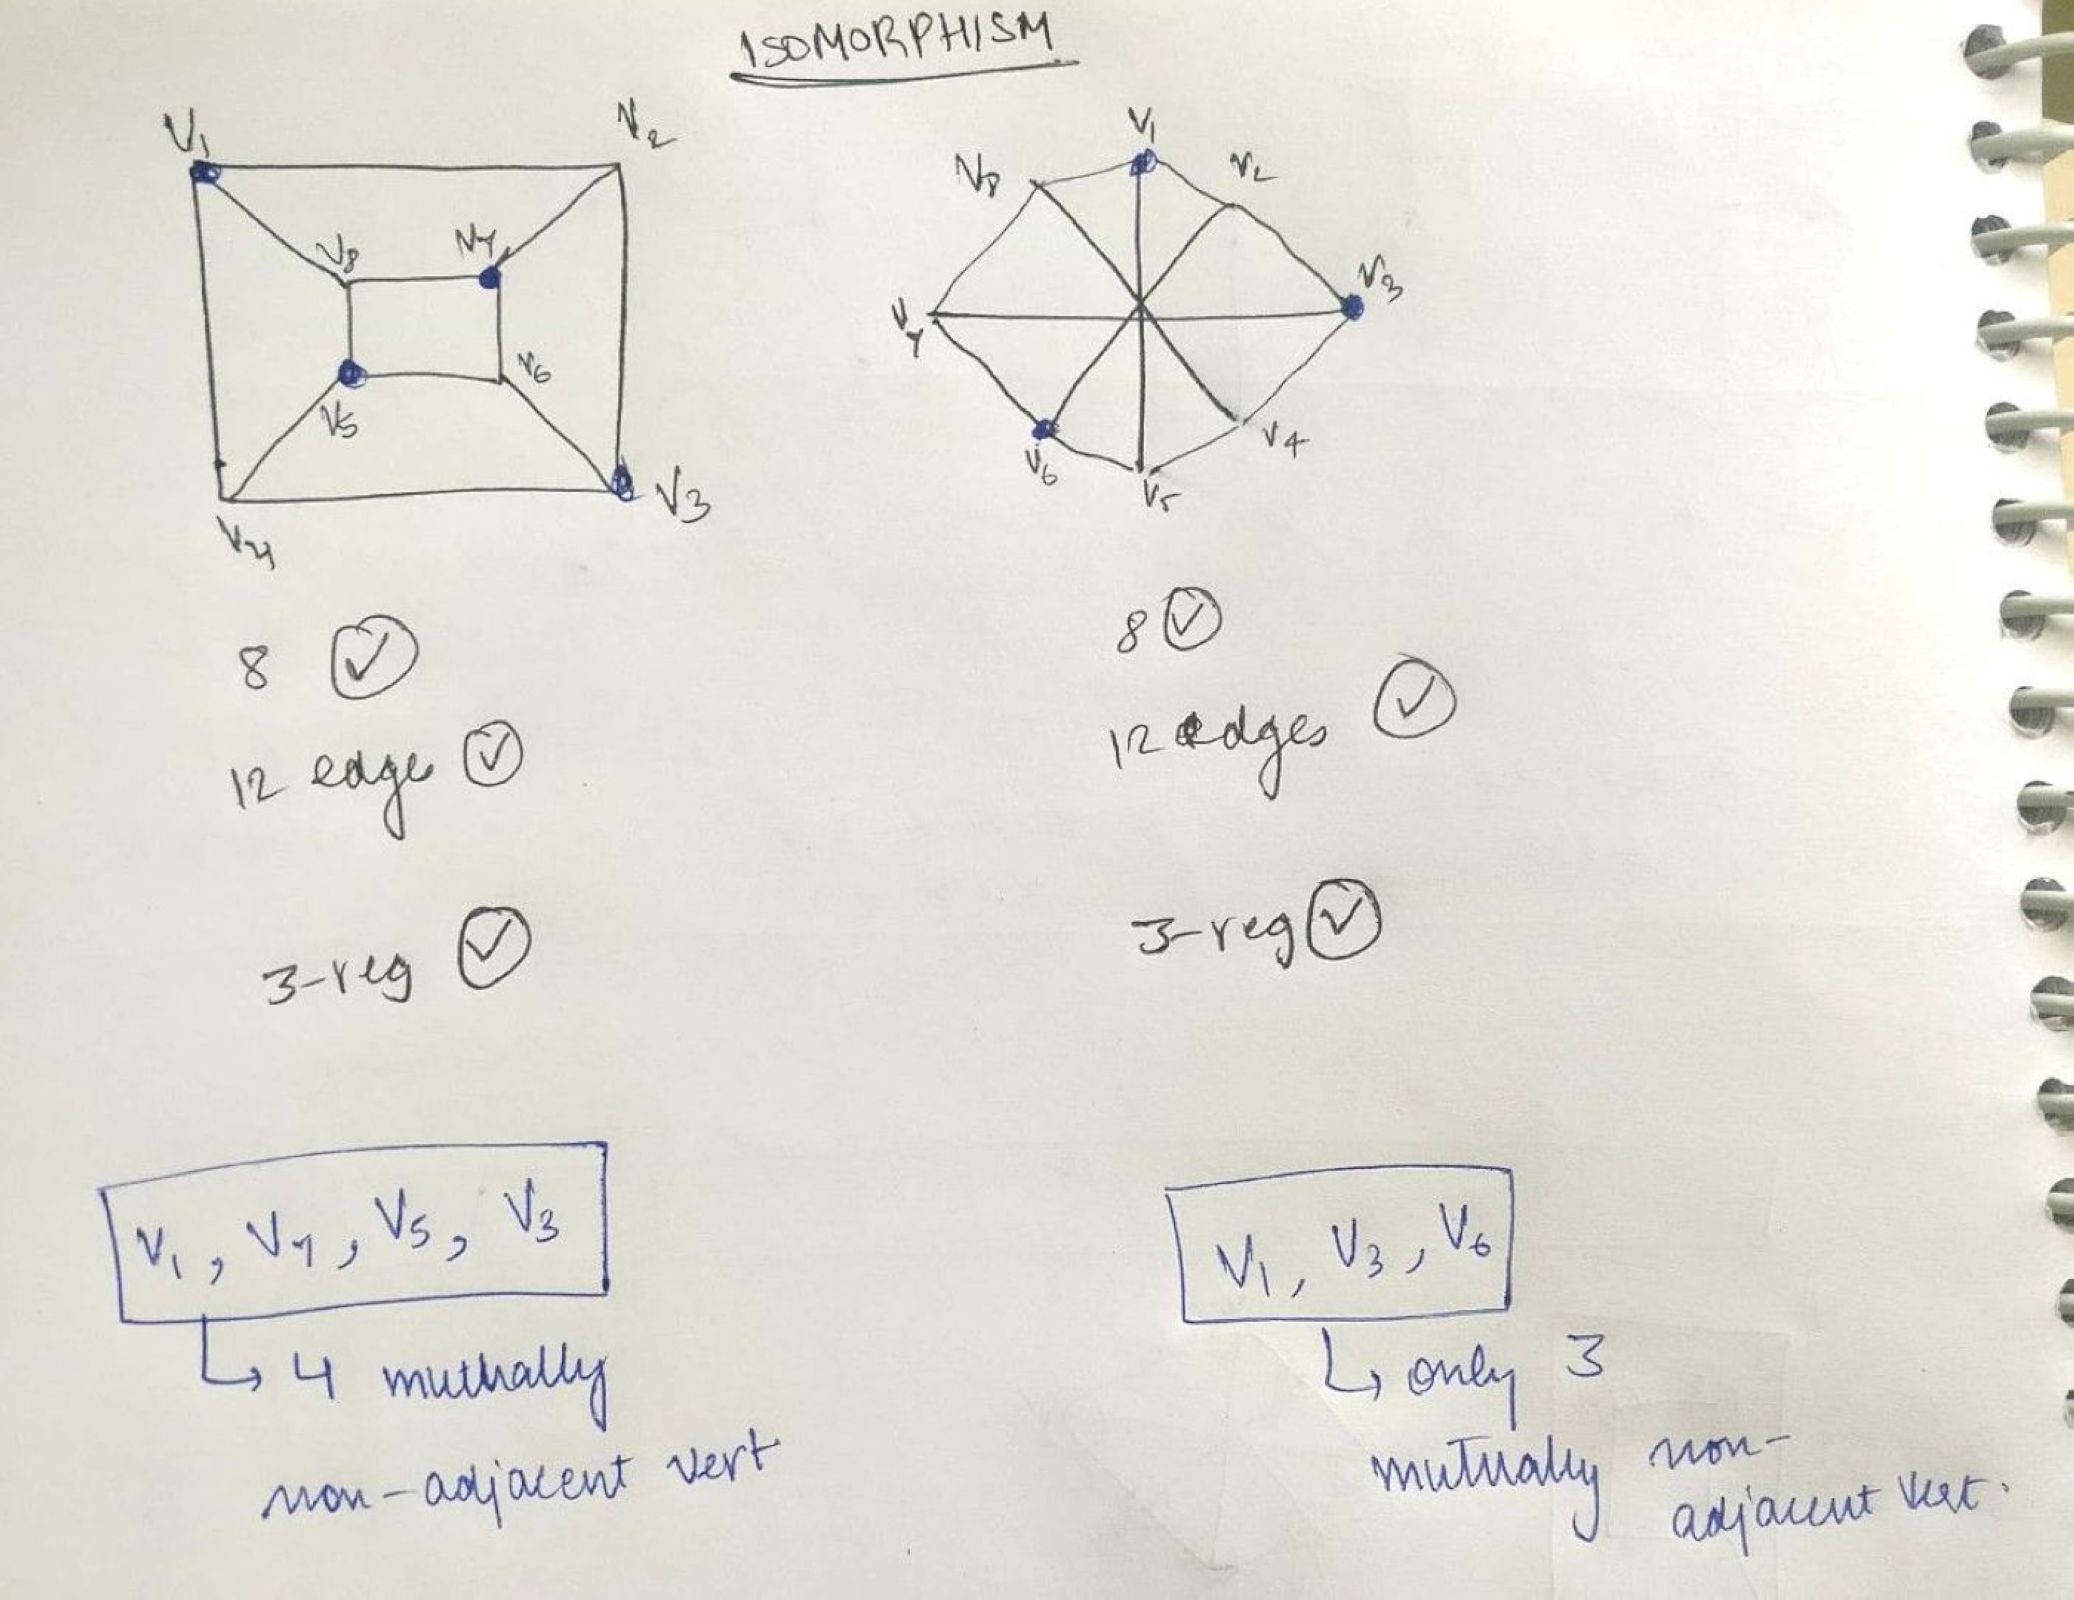 ISOMORPHISM
V1 V2
V8 V7
V5 V6
V4 V3
V1
V8 V2
V7 V3
V6 V4
V5
8
12 edge
3-reg
8
12 edges
3-reg
V1, V7, V5, V3
4 muthally
non-adjacent vert
V1, V3, V6
only 3
mutually non-
adjacent vert.